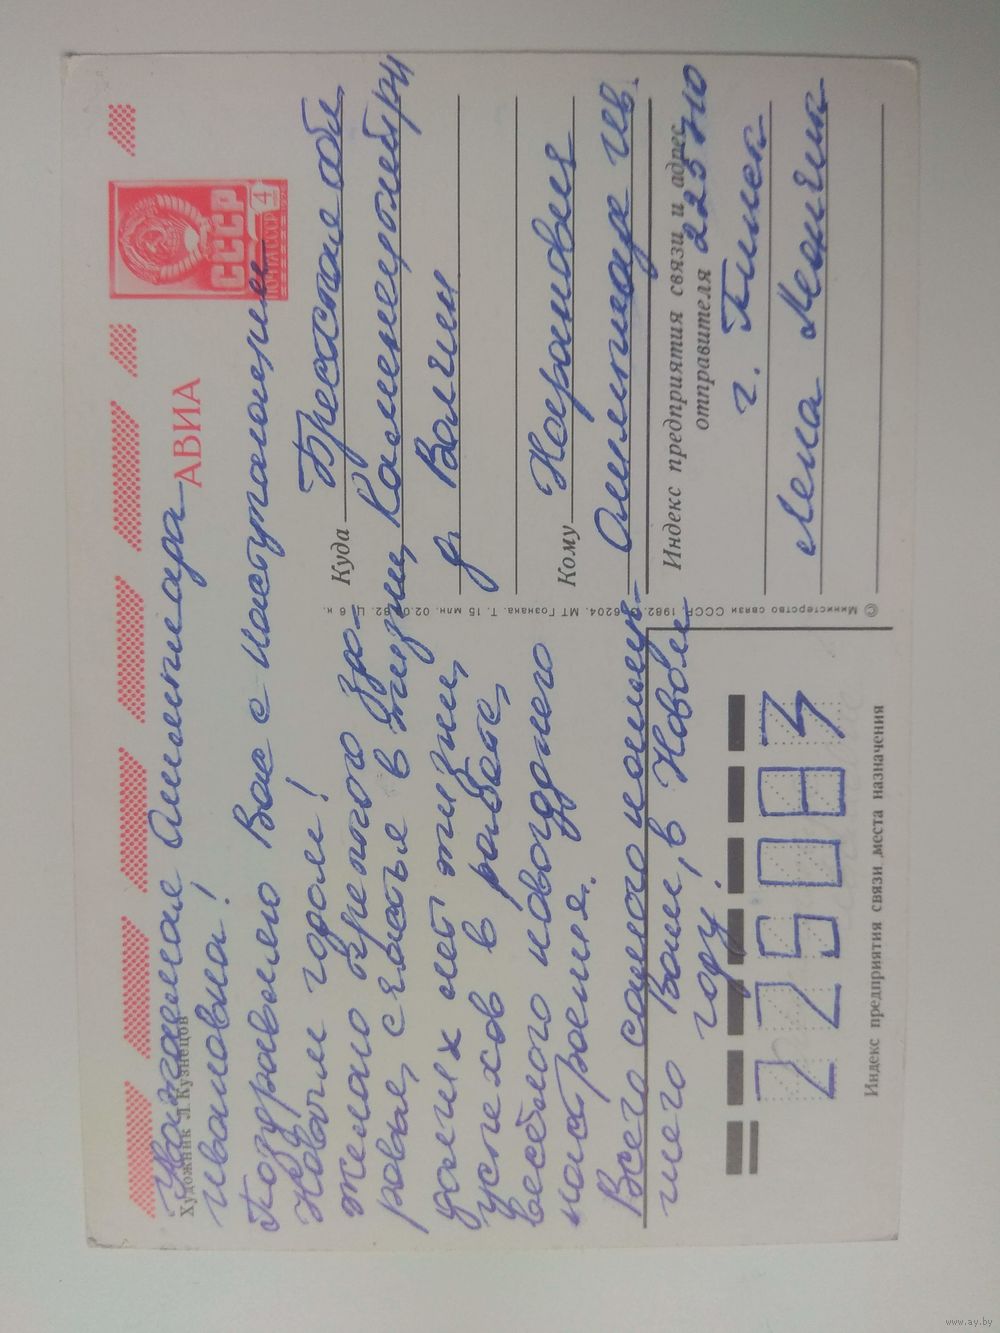 Художник Л. Кузнецов
АВИА
СССР
ПОЧТА СССР
4
Уважаемая
Ивановна!
Поздравляю Вас с наступающим
Новым годом!
Желаю крепкого здо-
ровья, счастья в жизни,
долгих лет жизни,
успехов в работе,
весёлого новогоднего
настроения.
Всего самого наилуч-
шего Вам, в Новом
году!
Куда
Брестская обл.
Каменецкий р-н
д. Волчин
Кому
Ив.
Индекс предприятия связи и адрес
отправителя 225710
г. Пинск
Лена
225083
Индекс предприятия связи места назначения
© Министерство связи СССР. 1982. 6204. МТ Гознака. Т. 15 млн. 02. 82. Ц. 6 к.
www.ay.by